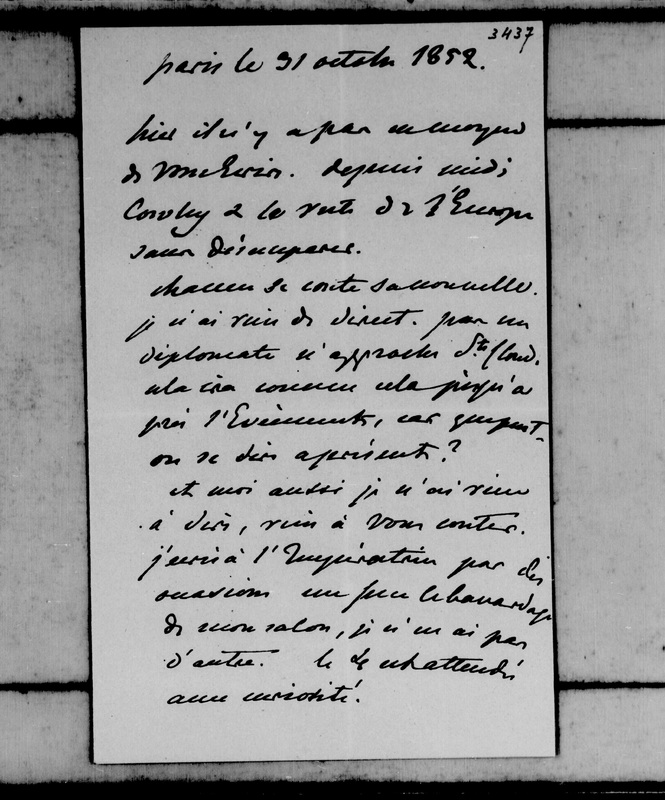 3437
paris le 31 octobre 1852.
hier il n'y a pas eu moyen
de vous écrire. depuis midi
Cowley & le reste de l'Europe
sans désemparer.
chacun se conte sa nouvelle.
je n'ai rien de direct. pas un
diplomate n'approche St Cloud.
cela ira comme cela jusqu'a
près l'Evènement, car que peut-
on se dire aprésent?
et moi aussi je n'ai rien
à dire, rien à vous conter.
j'écris à l'Impératrice par des
occasions un peu le bavardage
de mon salon, je n'en ai pas
d'autre. le 4 est attendu
avec curiosité.